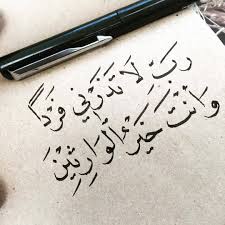 رَبِّ لَا تَذَرْنِي فَرْدًا
وَأَنْتَ خَيْرُ الْوَارِثِيْنَ